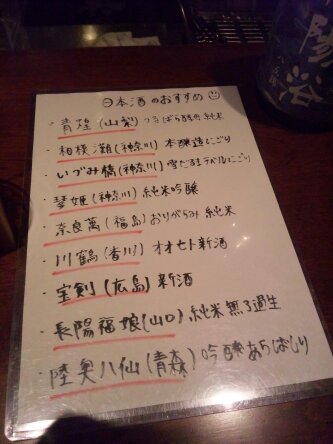 日本酒のおすすめ
・青煌(山梨) つるばら酵母 純米
・相模灘(神奈川) 本醸造にごり
・いづみ橋(神奈川) 雪だるまラベルにごり
・琴姫(神奈川) 純米吟醸
・奈良萬(福島) おりがらみ 純米
・川鶴(香川) オオセト新酒
・宝剣(広島) 新酒
・長陽福娘(山口) 純米無ろ過生
・陸奥八仙(青森) 吟醸あらばしり